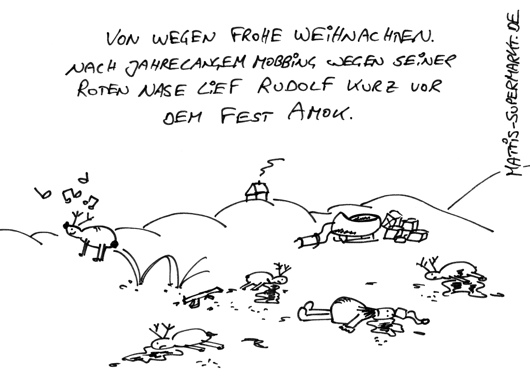 VON WEGEN FROHE WEIHNACHTEN.
NACH JAHRELANGEM MOBBING WEGEN SEINER
ROTEN NASE LIEF RUDOLF KURZ VOR
DEM FEST AMOK.
MATTIS-SUPERMARKT.DE